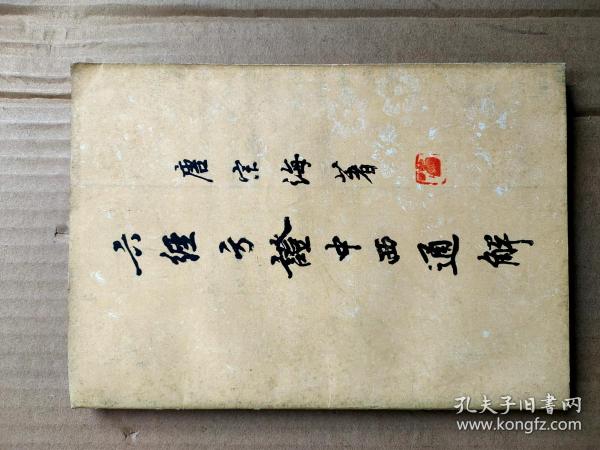 唐宗海著
六經方證中西通解
孔夫子旧书网
www.kongfz.com